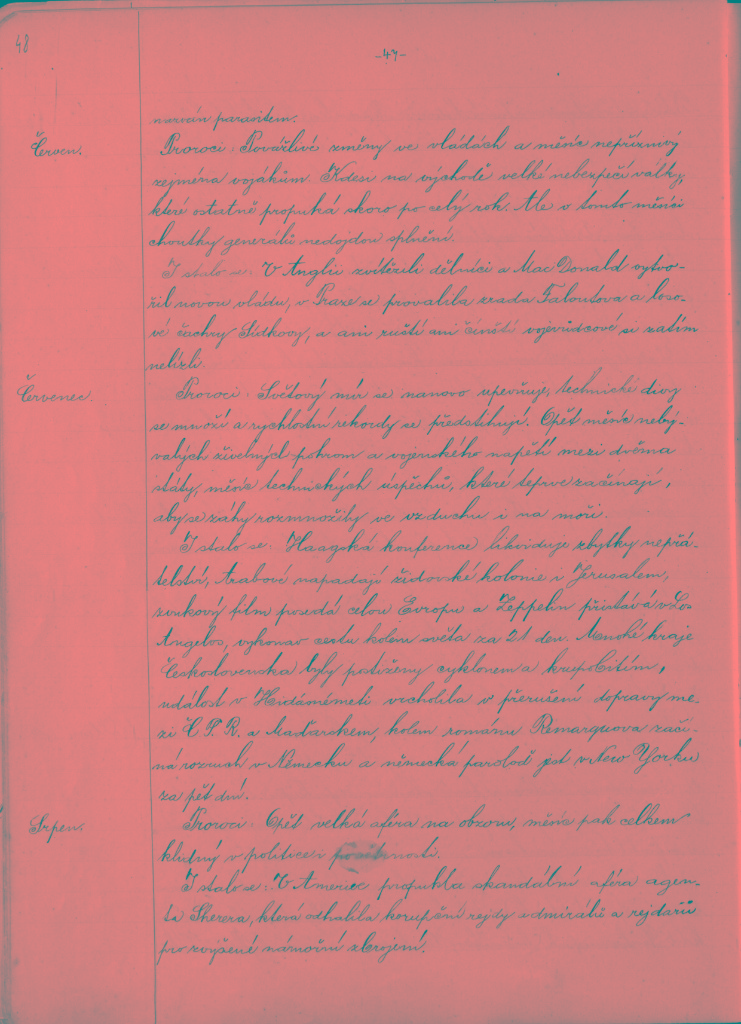 48
-47-
nazván parasitem.
Červen.
Proroci: Povážlivé změny ve vládách a měsíc nepříznivý
zejména vojákům. Kdesi na východě velké nebezpečí války,
které ostatně propuká skoro po celý rok. Ale v tomto měsíci
choutky generálů nedojdou splnění.
I stalo se: V Anglii zvítězili dělníci a Mac Donald vytvo-
řil novou vládu, v Praze se provalila zrada Faloutova a loso-
vé čachry Sídkovy, a ani ruští ani čínští vojevůdcové si zatím
nelízli.
Červenec.
Proroci: Světový mír se nanovo upevňuje, technické divy
se množí a rychlostní rekordy se předstihují. Opět měsíc neby-
valých živelných pohrom a vojenského napětí mezi dvěma
státy, měsíc technických úspěchů, které teprve začínají,
aby se záhy rozmnožily ve vzduchu i na moři.
I stalo se: Haagská konference likviduje zbytky nepřá-
telství, Arabové napadají židovské kolonie i Jerusalem,
zvukový film posedá celou Evropu a Zeppelin přistává v Los
Angelos, vykonav cestu kolem světa za 21 den. Mnohé kraje
Československa byly postiženy cyklonem a krupobitím,
událost v Hidásnémeti vrcholila v přerušení dopravy me-
zi Č.S.R. a Maďarskem, kolem románu Remarqueova začí-
ná rozruch v Německu a německá paroloď jest v New Yorku
za pět dní.
Srpen.
Proroci: Opět velká aféra na obzoru, měsíc pak celkem
klidný v politice i
I stalo se: V Americe propukla skandální aféra agen-
ta Sherera, která odhalila korupční rejdy admirálů a rejdařů
pro zvýšené námořní zbrojení.